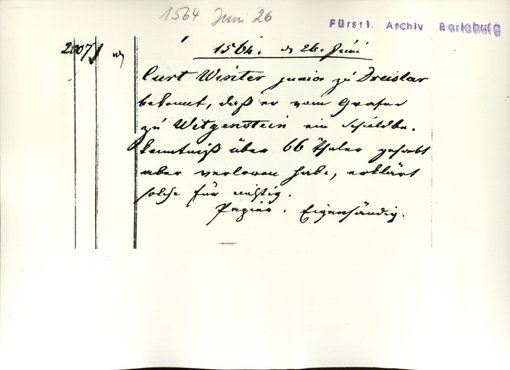 1564 Juni 26
Fürstl. Archiv Berleburg
2007
1564. d 26. Juni
Curt Winter junior zu Dreislar
bekennt, daß er vom Grafen
zu Witgenstein ein Schuldbe-
kenntniß über 66 Thaler gehabt
aber verloren habe, erklärt
solche für nichtig.
Papier. Eigenhändig.